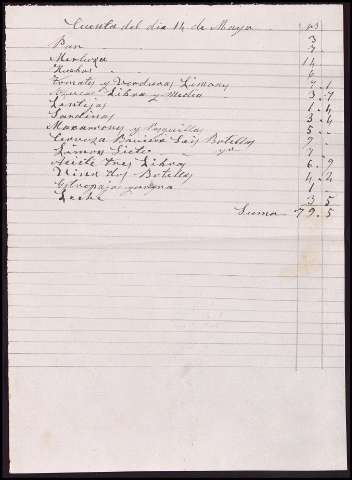 Cuenta del dia 14 de Mayo
3
Pan 7
Merluza 14
6
Tomates y Verduras Limones 7-1
Azucar Libra y Media 3-7
Lentejas 1-4
Sardinas 3-4
Macarrones y 5-
Cerveza Seis Botellas 9-
Limon Siete 7
Aceite tres Libras 6-9
Vino dos Botellas 4-4
Estropajo y arena 1-
Leche 3 5
Suma 79-5